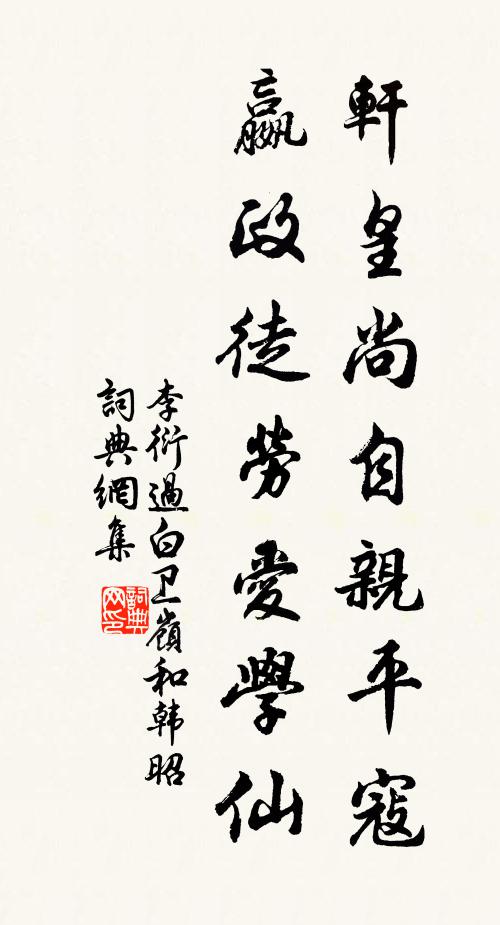 軒皇尚自親平寇
嬴政徒勞愛學仙
李衍過白卫嶺和韩昭
詞典網集
詞典网印